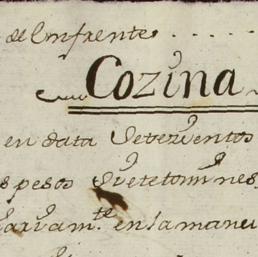 de Enfrente.....
Cozina
en data Seteçientos
s pesos Siete tomines
Garvam.te en la manei